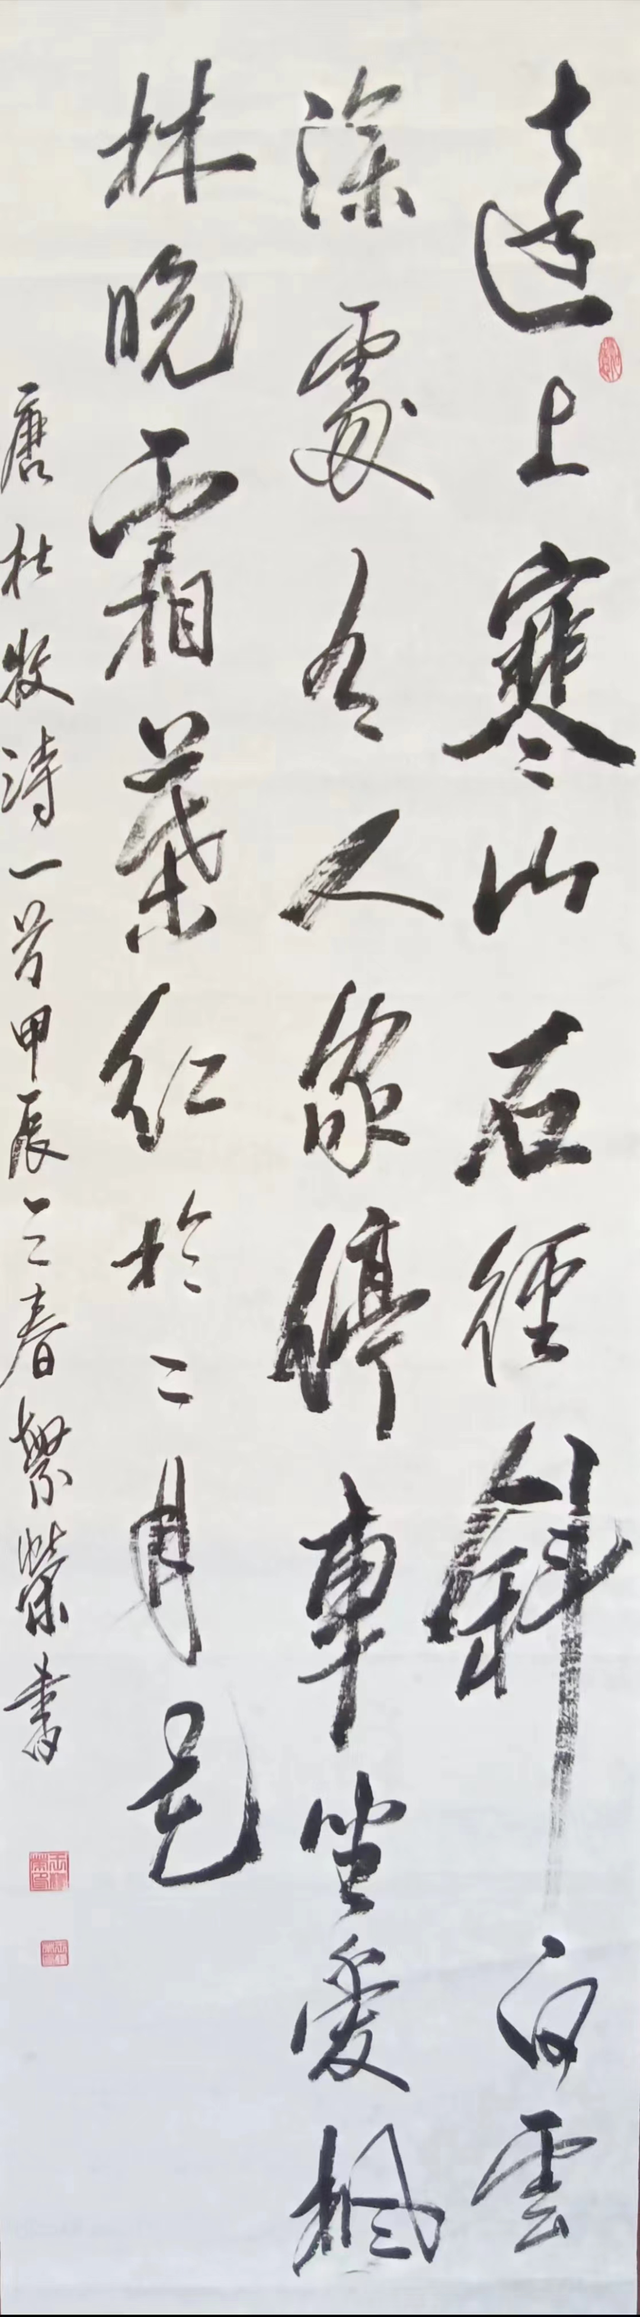 遠上寒山石徑斜白雲
深處有人家停車坐愛楓
林晚霜葉紅於二月花
唐杜牧詩一首甲辰之春繁榮書